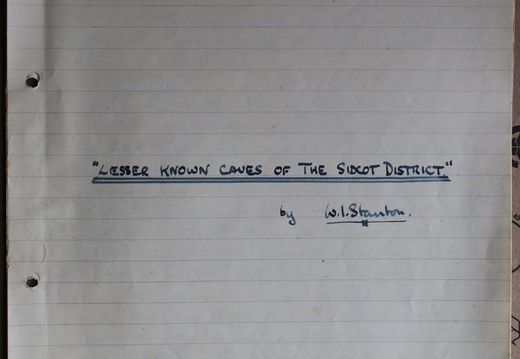 "LESSER KNOWN CAVES OF THE SIDCOT DISTRICT."
by W.I.Stanton.